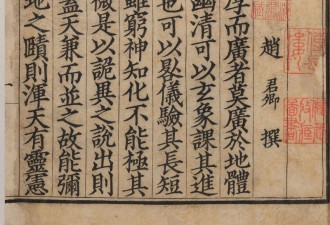 趙君卿撰
厚而廣者莫廣於地體
幽清可以玄象課其進
也可以晷儀驗其長短
雖窮神知化不能極其
微是以詭異之說出則
蓋天兼而並之故能彌
地之賾則渾天有靈憲